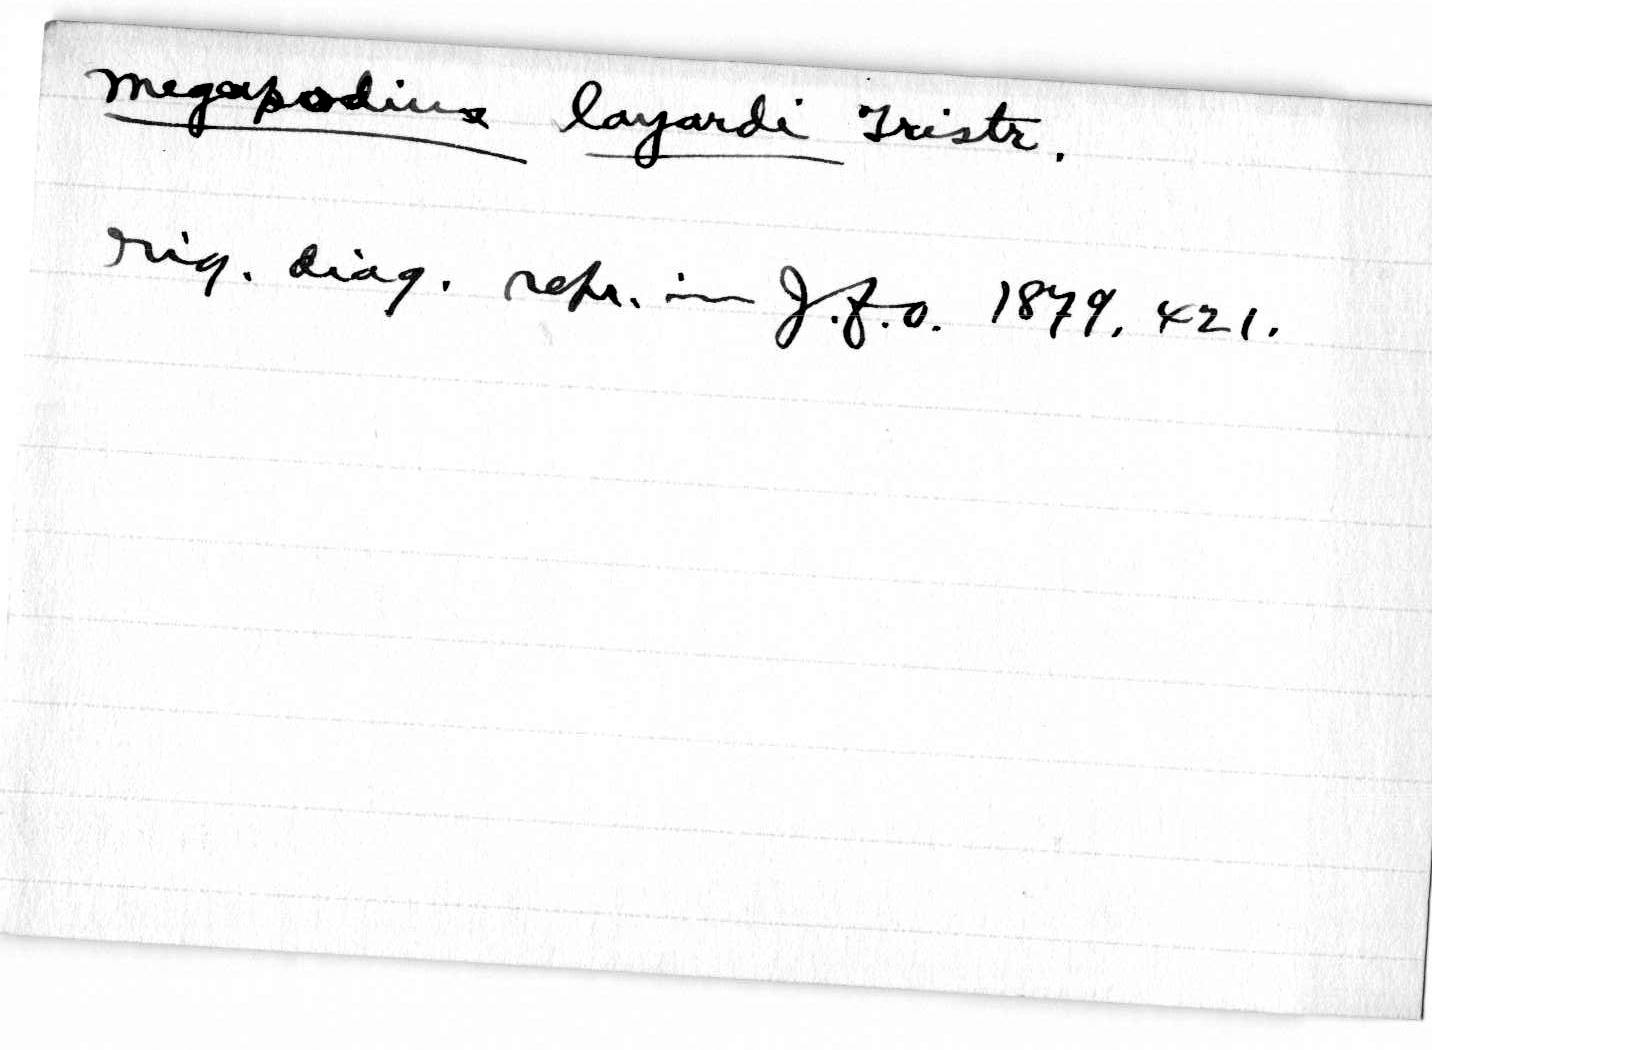 Megapodius layardi Tristr.
rig. diag. repr. in J.f.O. 1879, 421.